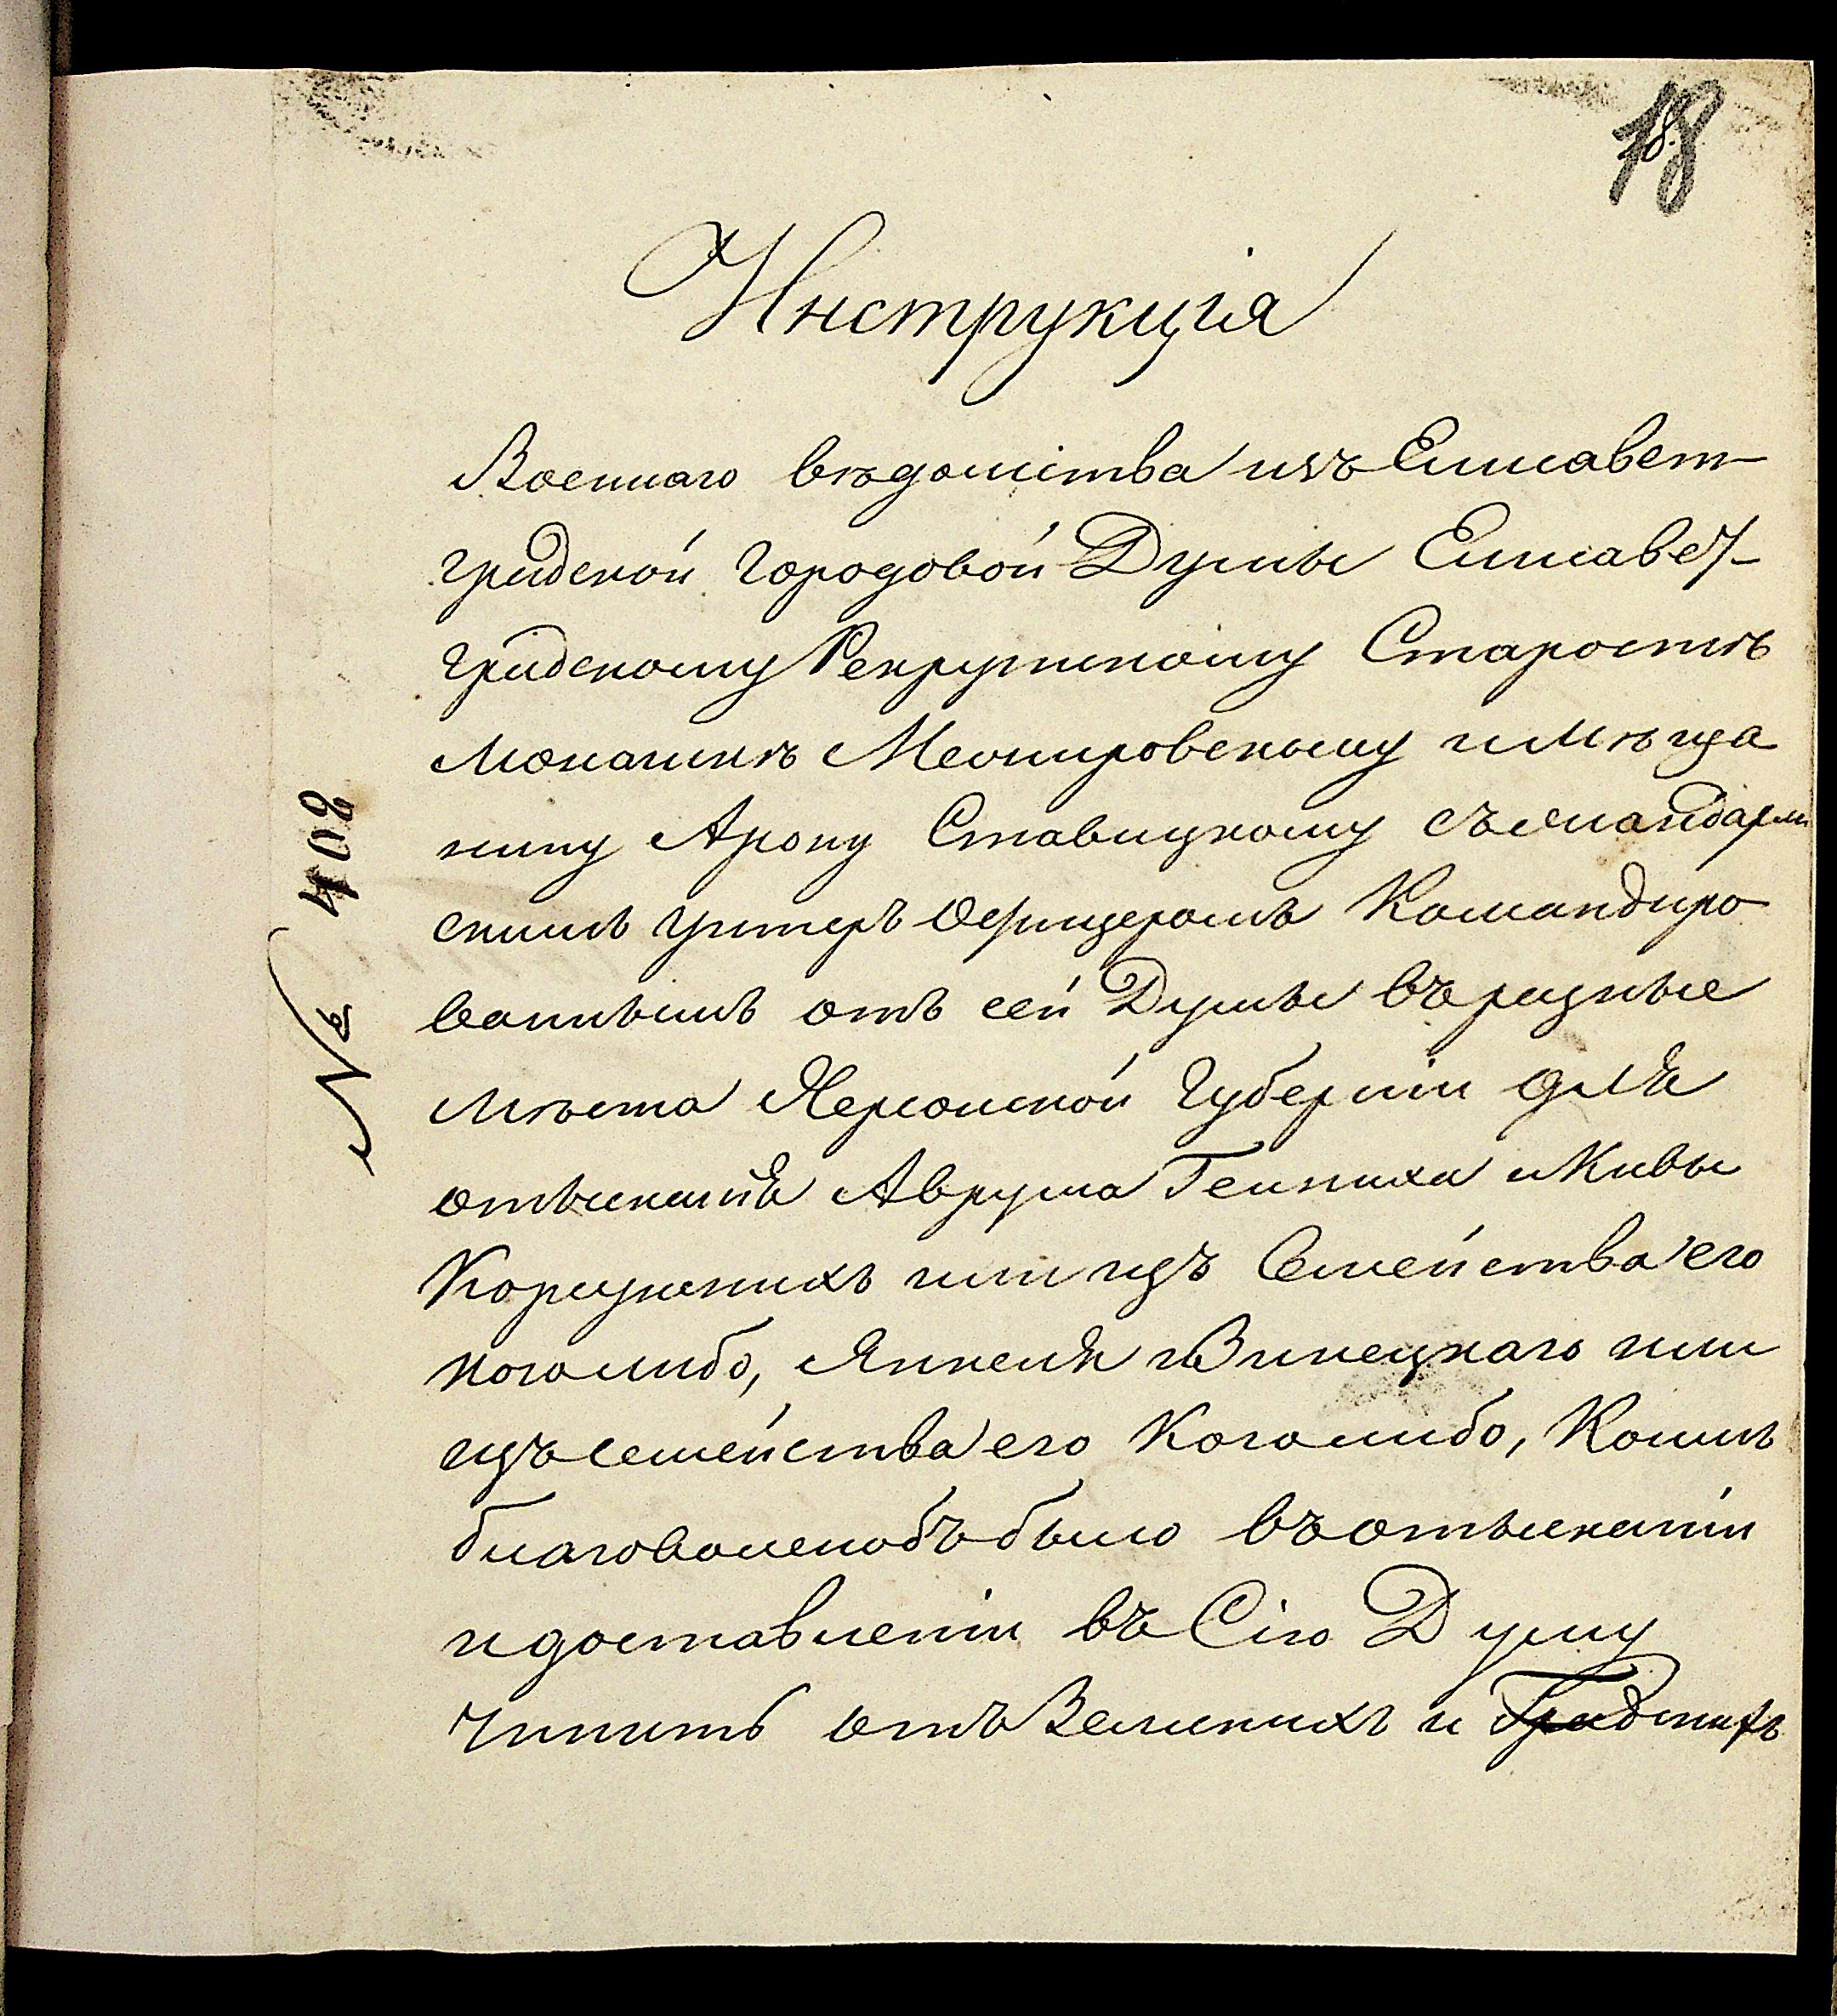 18
Инструкція
Военнаго вѣдомства изъ Елисавет-
градской Городовой Думы Елисавет-
градскому Рекрутскому Старостѣ
Мошкѣ Меомировскому и мѣща
нину Арону Ставицкому съ жандарм
скимъ унтеръ офицеромъ Командиро
ваннымъ отъ сей Думы въ разные
мѣста Херсонской Губерніи для
отысканія Аврума Гейниха и Кивы
Корецкихъ или изъ Семейства его
кого либо, Янкеля Винецкаго или
изъ семейства его Кого либо, Коимъ
благоволенобъ было въ отысканіи
и доставленіи въ Сію Думу
чинить отъ Земскихъ и Градскихъ
№ 402